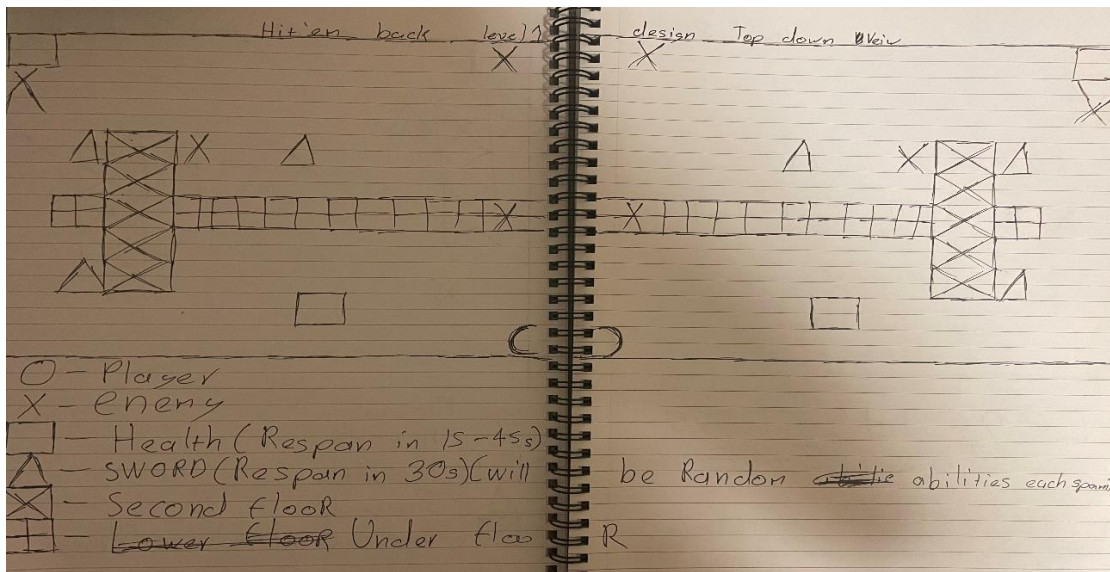 Hit'en back level 1 design Top down Veiw
O - Player
X - enemy
□ - Health (Respan in 15-45s)
△ - SWORD (Respan in 30s) (will be Random abilities each spawn
- Second flooR
- Lower flooR Under flooR